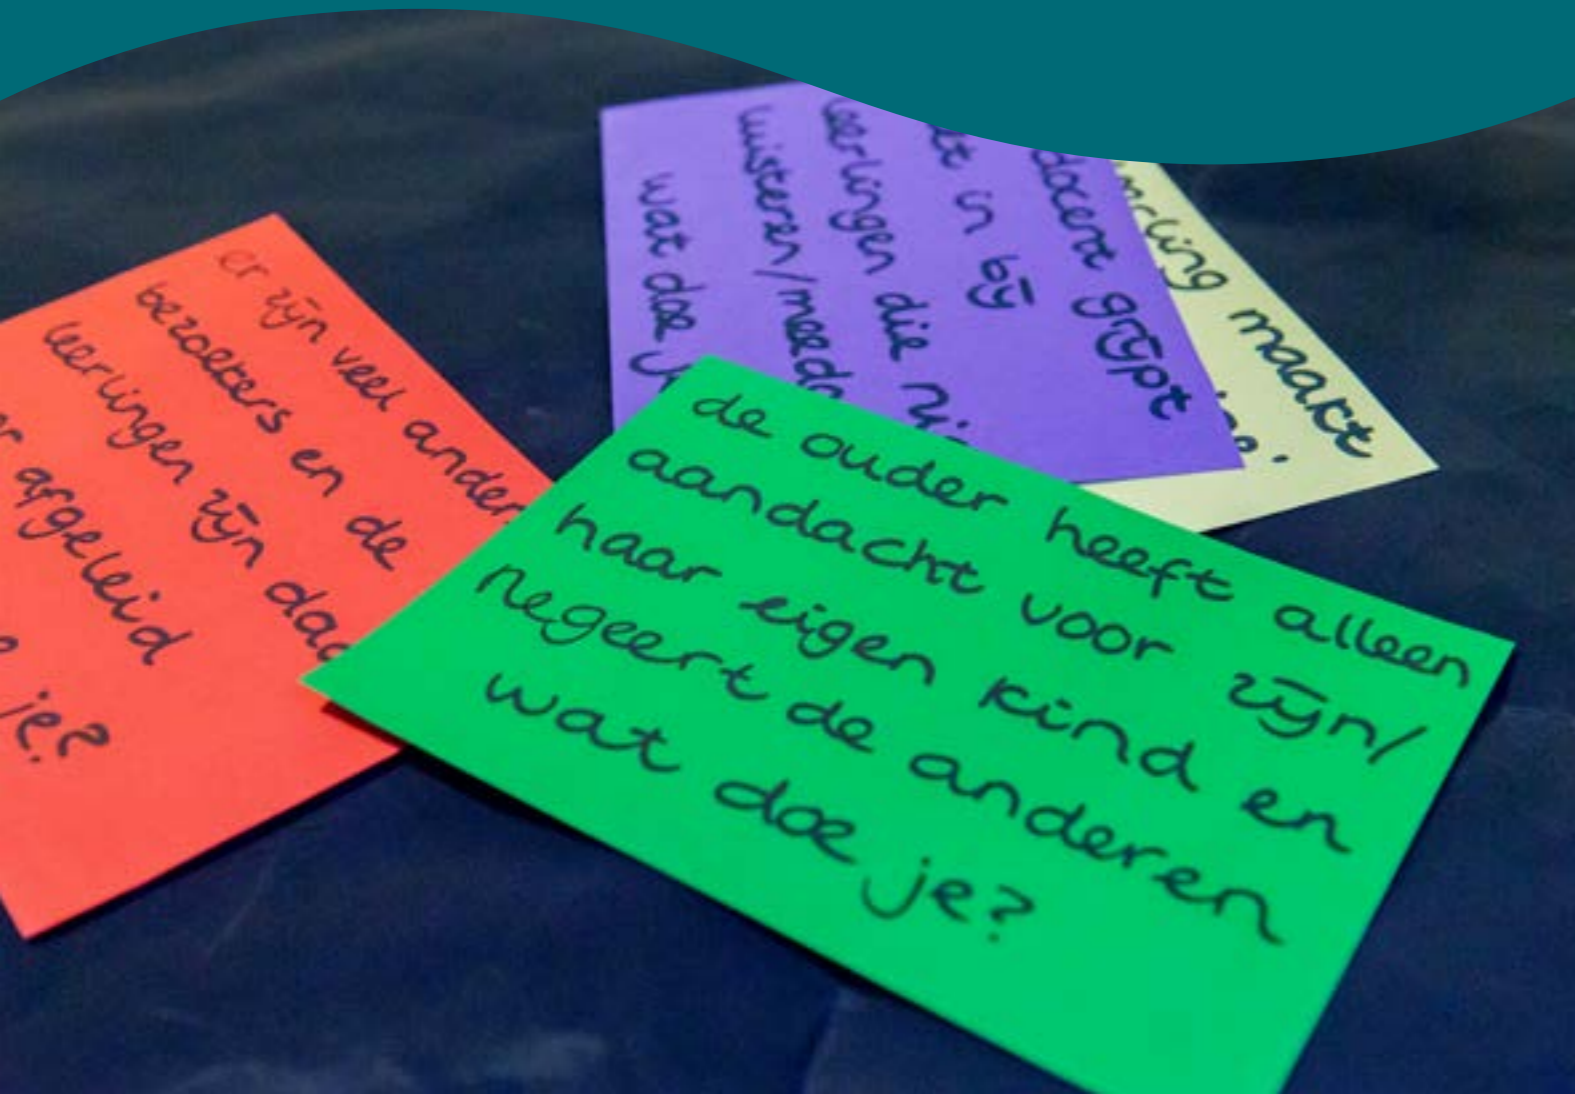 er zijn veel ander
bezoekers en de
leerlingen zijn
afgeleid
je?
docent grijpt
in bij
leerlingen die
luisteren/meedo
wat doe
maakt
de ouder heeft alleen
aandacht voor zijn/
haar eigen kind en
negeert de anderen
wat doe je?